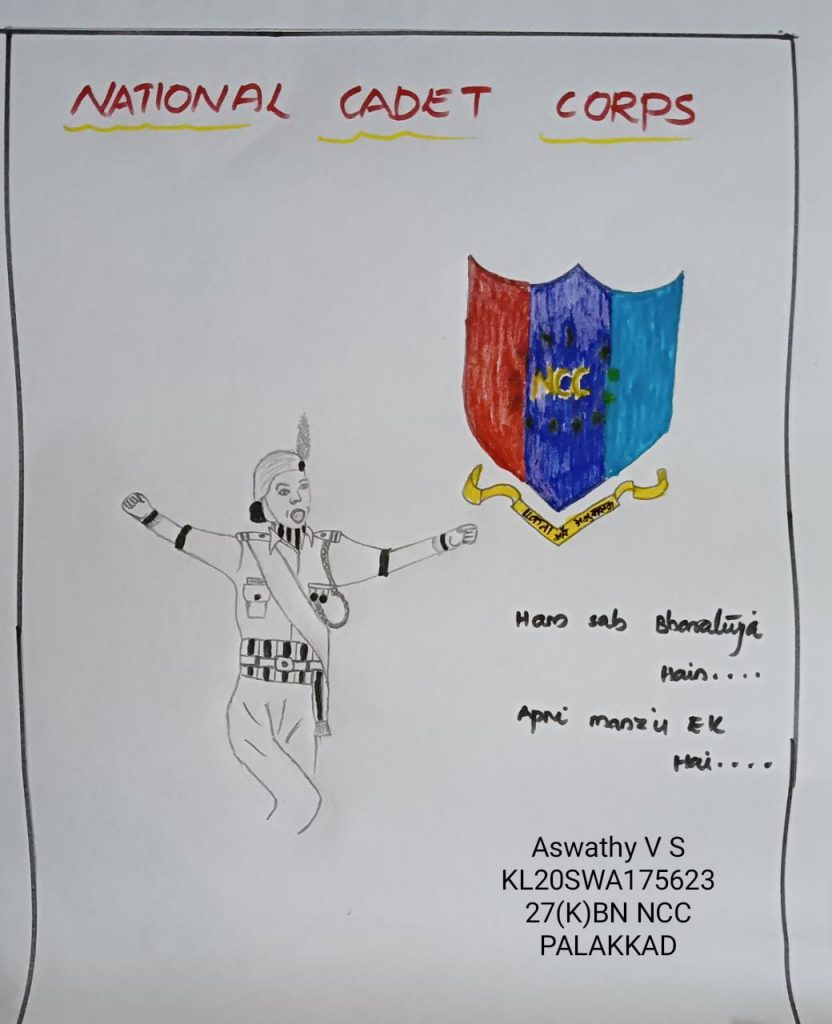 NATIONAL CADET CORPS
NCC
Ham sab Bharatiya
Hain....
Apni manzil EK
Hai....
Aswathy V S
KL20SWA175623
27(K)BN NCC
PALAKKAD